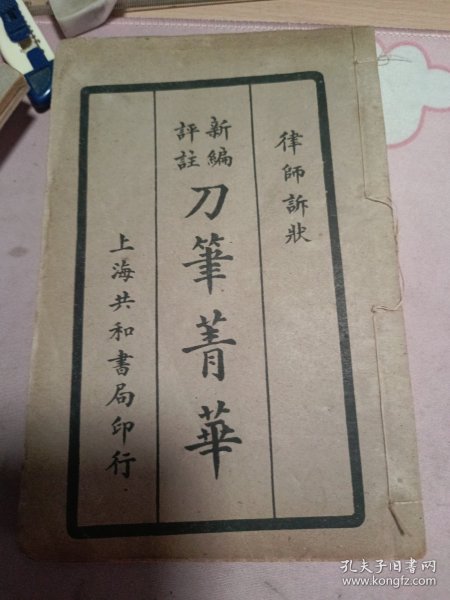 律師訴狀
新編
評註
刀筆菁華
上海共和書局印行
孔夫子旧书网
www.kongfz.com